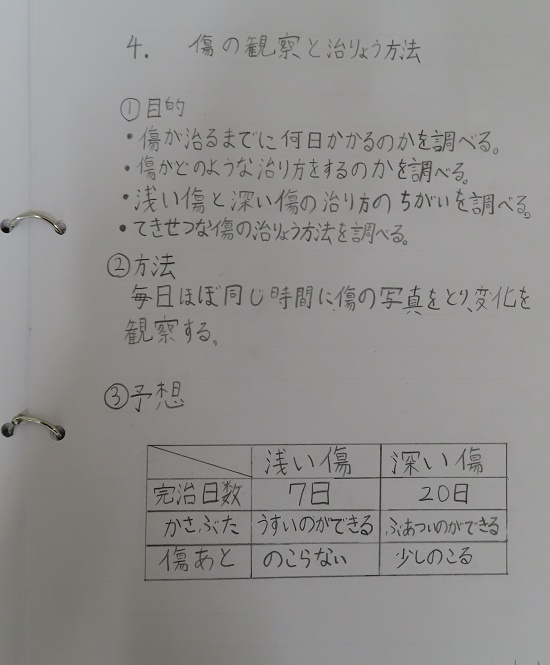 4. 傷の観察と治りょう方法
①目的
・傷が治るまでに何日かかるのかを調べる。
・傷がどのような治り方をするのかを調べる。
・浅い傷と深い傷の治り方のちがいを調べる。
・てきせつな傷の治りょう方法を調べる。
②方法
毎日ほぼ同じ時間に、傷の写真をとり、変化を
観察する。
③予想
浅い傷 深い傷
完治日数 7日 20日
かさぶた うすいのができる ぶあついのができる
傷あと のこらない 少しのこる